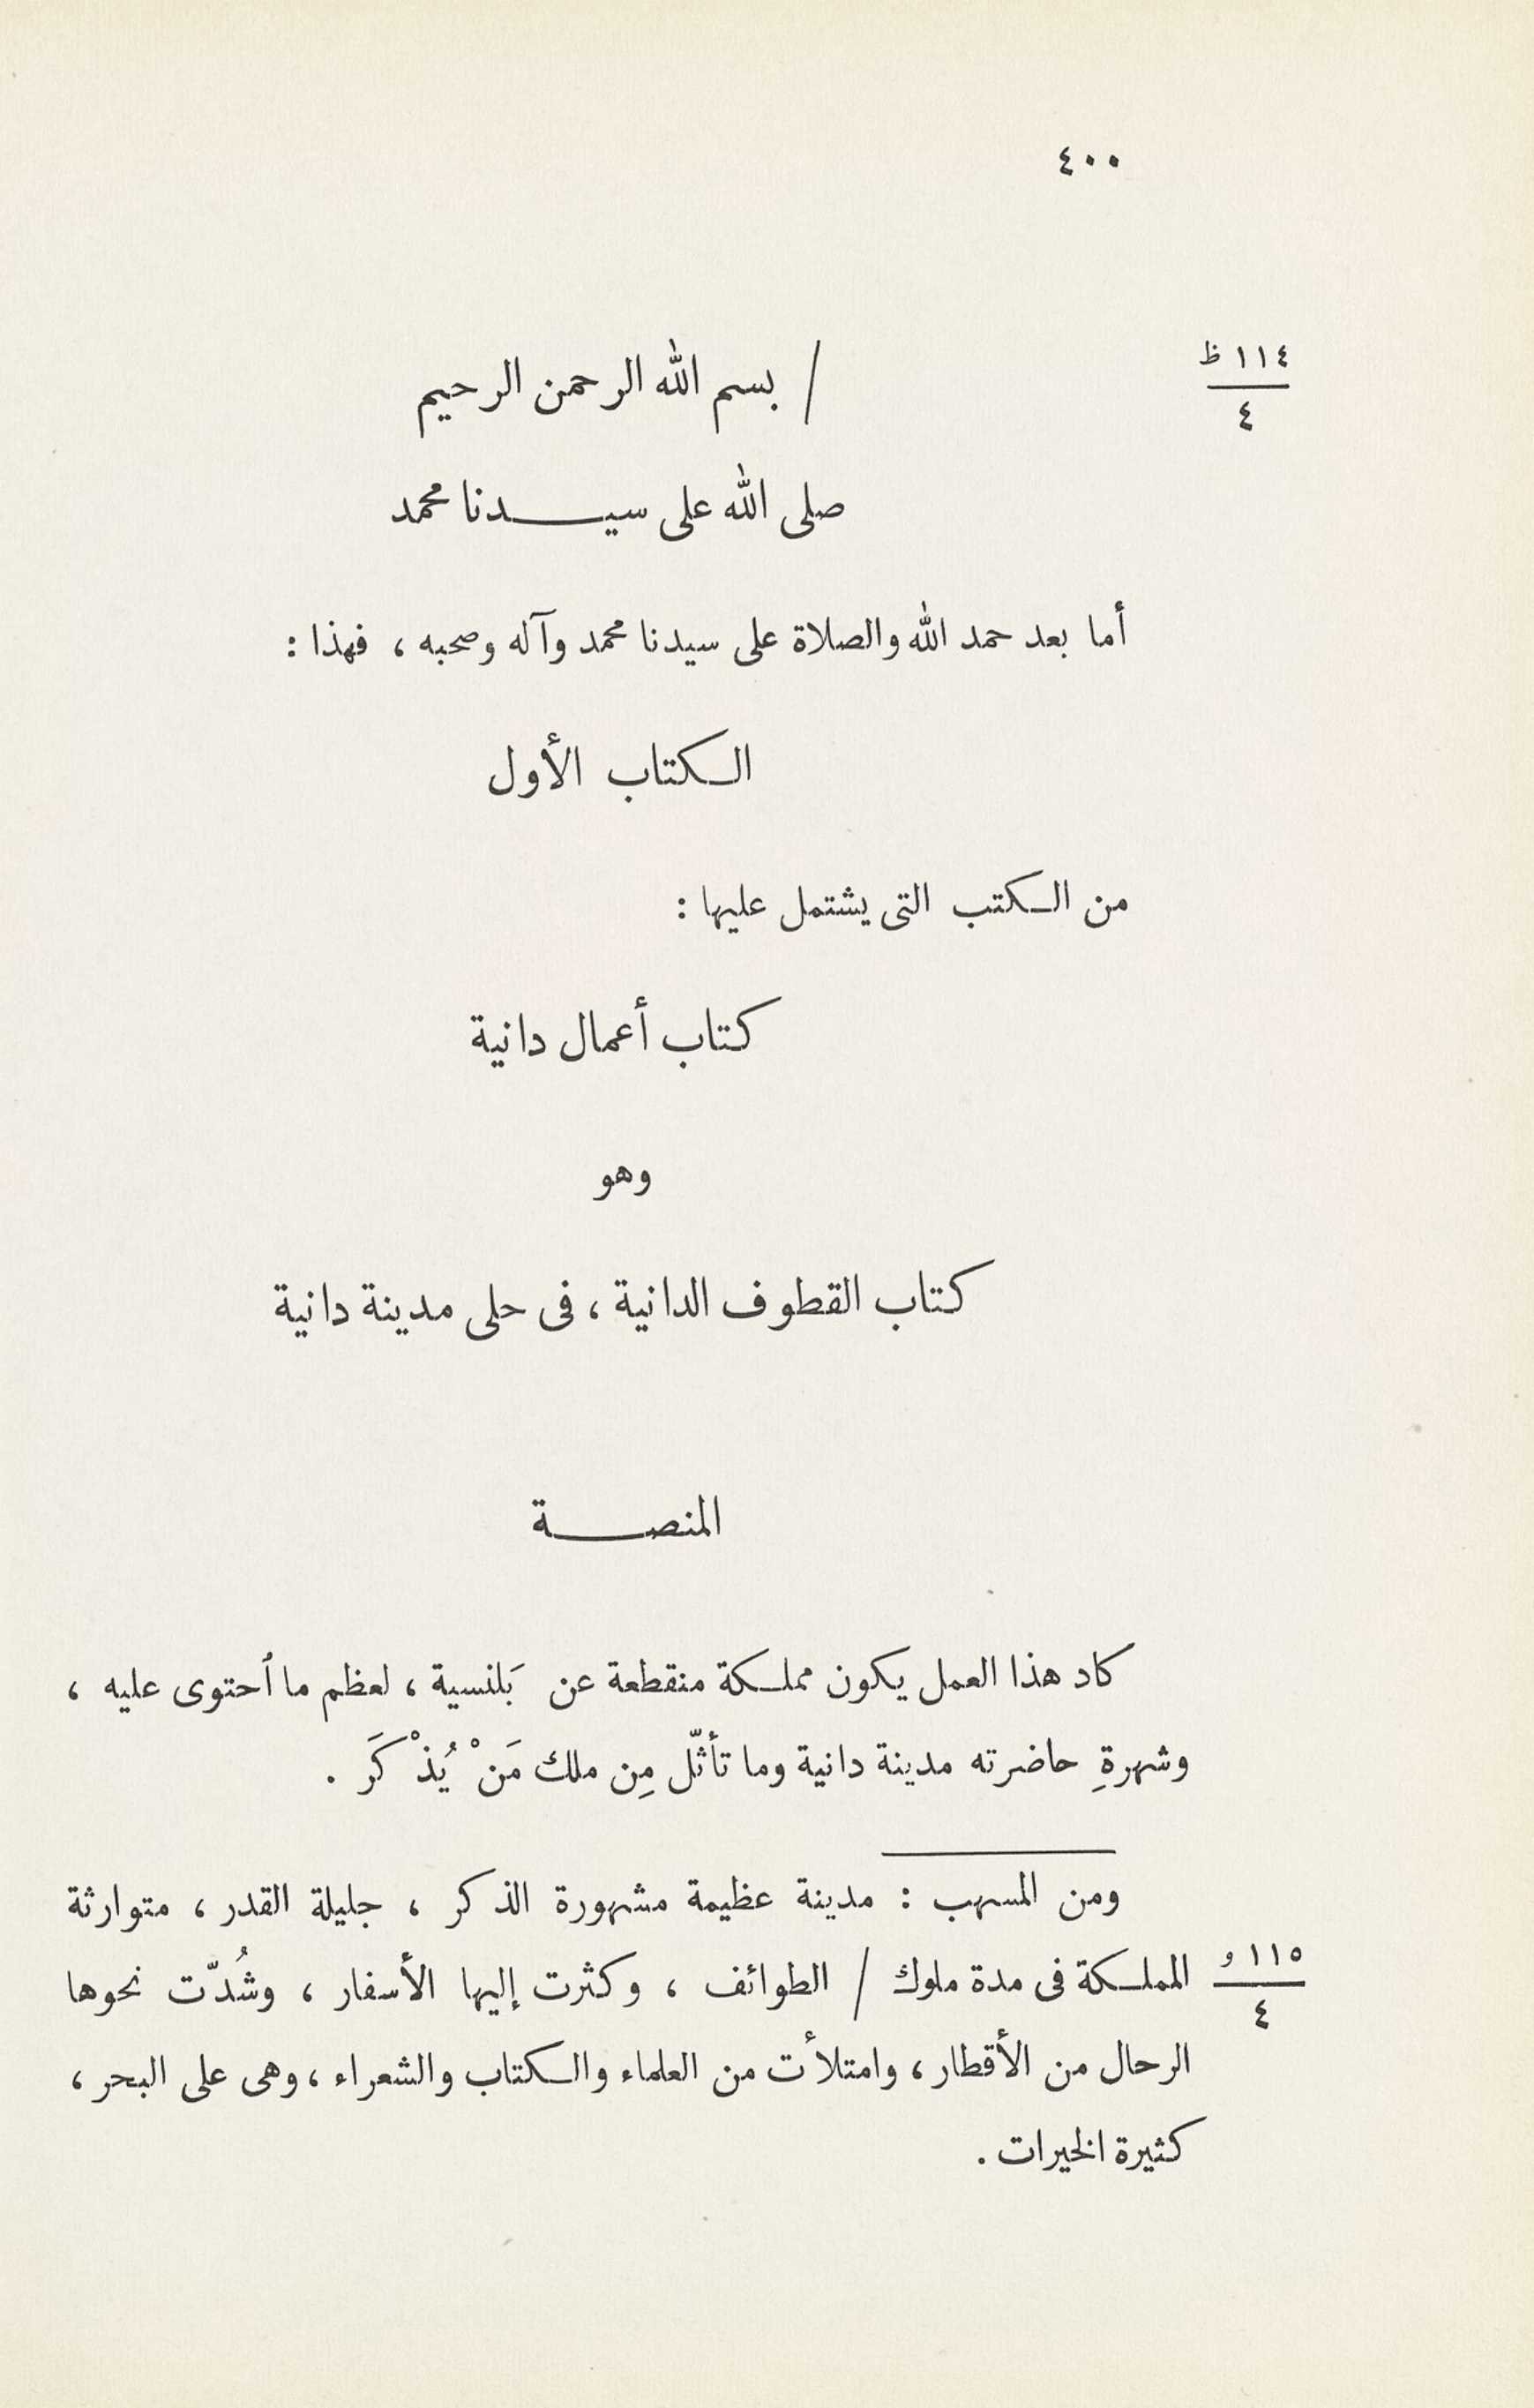 ٤٠٠
١١٤ ظ
٤
/ بسم الله الرحمن الرحيم
صلى الله على سيدنا محمد
أما بعد حمد الله والصلاة على سيدنا محمد وآله وصحبه ، فهذا :
الكتاب الأول
من الكتب التى يشتمل عليها :
كتاب أعمال دانية
وهو
كتاب القطوف الدانية ، فى حلى مدينة دانية
المنصة
كاد هذا العمل يكون مملكة منقطعة عن بَلنسية ، لعظم ما ٱحتوى عليه ،
وشهرةِ حاضرته مدينة دانية وما تأثّل مِن ملك مَنْ يُذْكَر .
ومن المسهب : مدينة عظيمة مشهورة الذكر ، جليلة القدر ، متوارثة
١١٥ و
٤
المملكة فى مدة ملوك / الطوائف ، وكثرت إليها الأسفار ، وشُدّت نحوها
الرحال من الأقطار ، وامتلأت من العلماء والكتاب والشعراء ، وهى على البحر ،
كثيرة الخيرات .